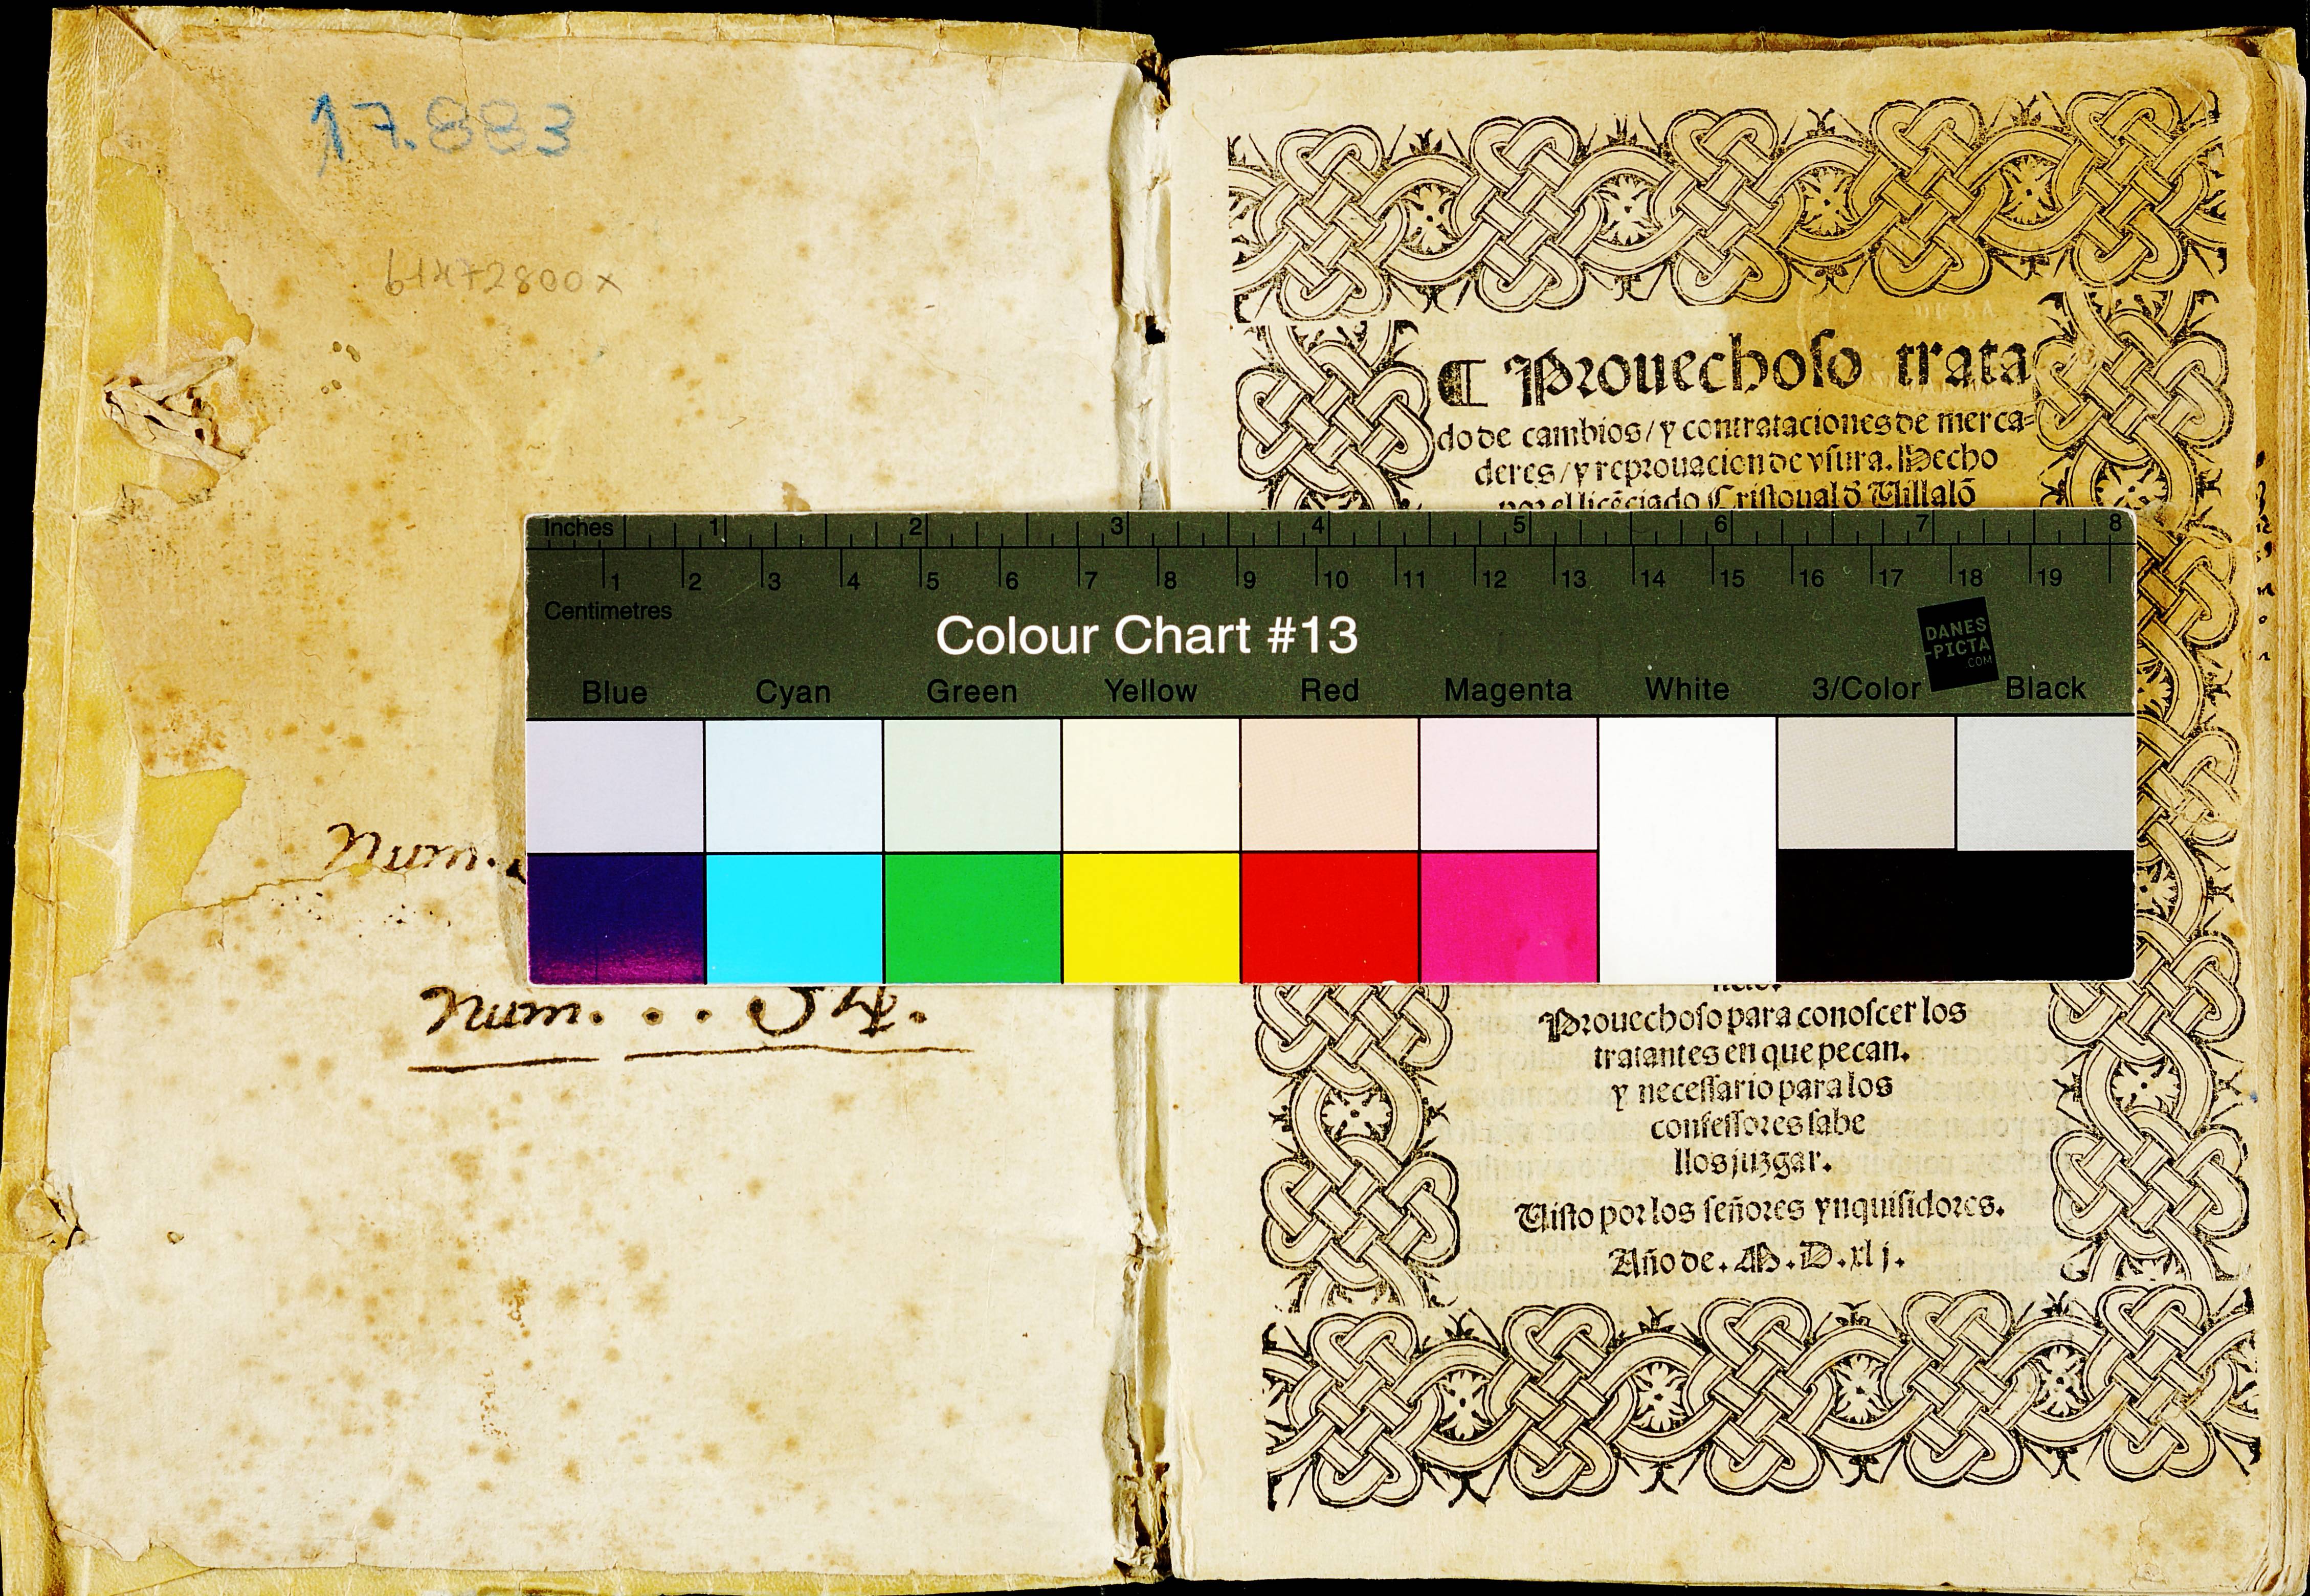 17.883
Num.
Num. . .
¶ Prouechoso trata
do de cambios/ y contrataciones de merca=
deres/ y reprouacion de vsura. Hecho
por el licẽciado Cristoual đ Uillalõ
Inches 1 2 3 4 5 6 7 8
1 2 3 4 5 6 7 8 9 10 11 12 13 14 15 16 17 18 19
Centimetres
Colour Chart #13
DANES
-PICTA
.COM
Blue Cyan Green Yellow Red Magenta White 3/Color Black
Prouechoso para conoscer los
tratantes en que pecan.
y necessario para los
confessores sabe
llos juzgar.
Uisto por los señores ynquisidores.
Año de. M.D.xlj.